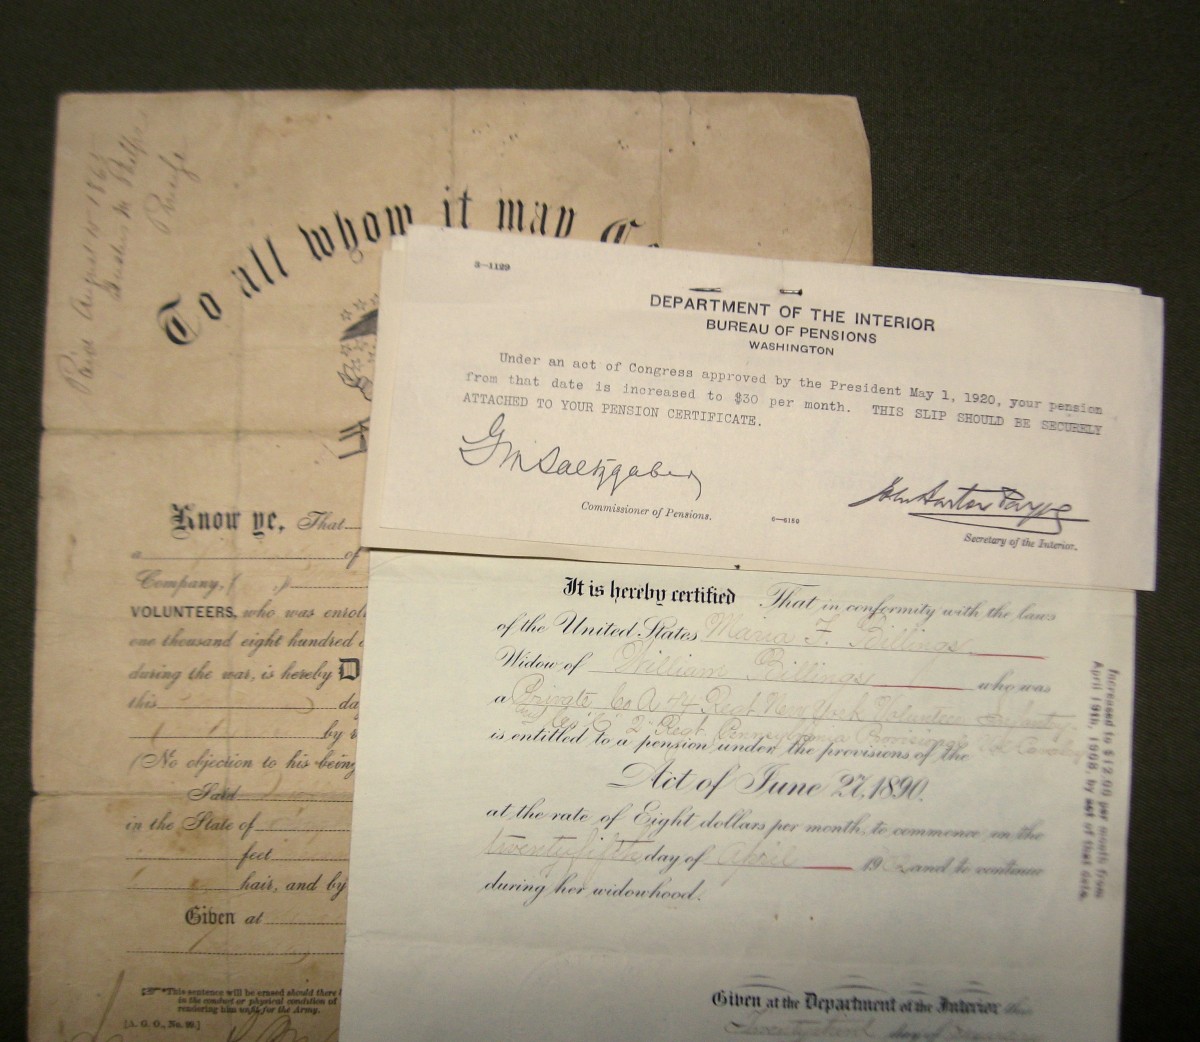 Paid August 15 1865
To all whom it may
Know ye, That
a of
Company, ( )
VOLUNTEERS, who was enrol
one thousand eight hundred
during the war, is hereby D
this da
by
(No objection to his being
Said
in the State of
feet
hair, and by
Given at
*This sentence will be erased should there
in the conduct or physical condition of
rendering him unfit for the Army.
[A. G. O., No. 99.]
3—1129
DEPARTMENT OF THE INTERIOR
BUREAU OF PENSIONS
WASHINGTON
Under an act of Congress approved by the President May 1, 1920, your pension
from that date is increased to $30 per month. THIS SLIP SHOULD BE SECURELY
ATTACHED TO YOUR PENSION CERTIFICATE.
G M Saltzgaber
John Barton Payne
Commissioner of Pensions.
6—6180
Secretary of the Interior.
It is hereby certified That in conformity with the laws
of the United States Maria F. Billings
Widow of William Billings who was
a Private Co A 74 Regt New York Volunteer Infantry
and Co "E" 2" Regt Pennsylvania Provisional Cavalry
is entitled to a pension under the provisions of the
Act of June 27, 1890.
at the rate of Eight dollars per month, to commence on the
twenty fifth day of April 190 and to continue
during her widowhood.
Given at the Department of the Interior this
day of
Increased to $12.00 per month from
April 19th, 1908, by act of that date.